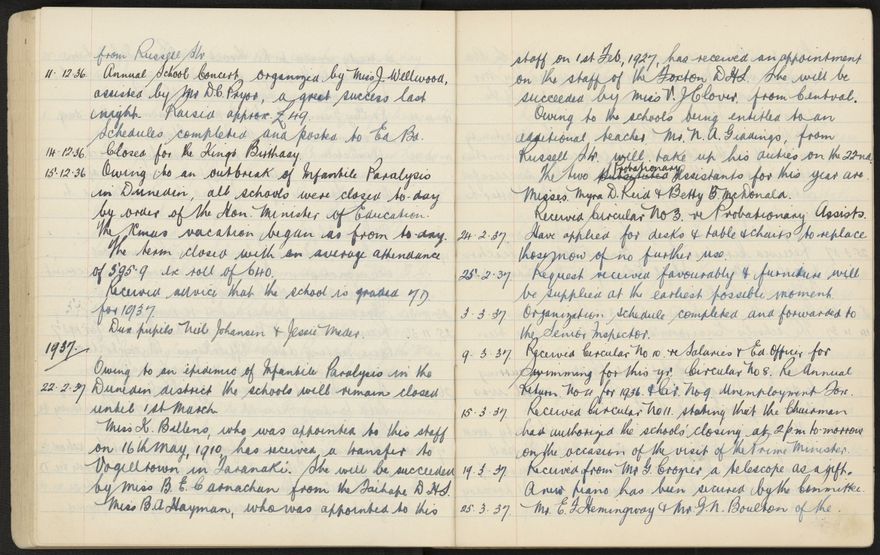 from Russell Str.
11.12.36 Annual School Concert, organized by Miss J. Wellwood,
assisted by Mr D.C. Pryor, a great success last
night. Raised approx £49.
Schedules completed and posted to Ed Bd.
14.12.36 Closed for the Kings Birthday
15.12.36 Owing to an outbreak of Infantile Paralysis
in Dunedin, all schools were closed to-day
by order of the Hon. Minister of Education.
The Xmas vacation began as from to-day.
The term closed with an average attendance
of 595.9 ex roll of 640.
Received advice that the school is graded 7D
for 1937
Dux pupils Neil Johansen & Jessie Meder.
1937.
Owing to an epidemic of Infantile Paralysis in the
22.2.37 Dunedin district the schools will remain closed
until 1st March
Miss K. Ballens, who was appointed to this staff
on 16th May, 1910, has received a transfer to
Vogeltown in Taranaki. She will be succeeded
by Miss B.E. Carnachan from the Taihape D.H.S.
Miss B.A. Hayman, who was appointed to this
staff on 1st Feb, 1927, has received an appointment
on the staff of the Foxton D.H.S. She will be
succeeded by Miss V. J. Clover, from Central.
Owing to the schools being entitled to an
additional teacher Mr. N. A. Giddings, from
Russell Str. will take up his duties on the 22nd.
The two Probationary Assistants for this year are
Misses Myra D. Reid & Betty B. McDonald.
Received Circular No 3. re Probationary Assists.
24.2.37 Have applied for desks & table & chairs to replace
those now of no further use.
25.2.37 Request received favourably & furniture will
be supplied at the earliest possible moment.
3.3.37 Organization Schedule completed and forwarded to
the Senior Inspector.
9.3.37 Received Circular No 10. re Salaries & Ed. Officer for
Swimming for this yr. Circular No 8. Re Annual
Return No 11, for 1936. & Cir. No 9. Unemployment Tax.
15.3.37 Received Circular No 11. stating that the Chairman
had authorized the schools' closing at 2 p.m to-morrow
on the occasion of the visit of the Prime Minister.
19.3.37 Received from Mr G. Cropper a telescope as a gift.
A new piano has been secured by the Committee.
25.3.37 Mr. E. T. Hemingway & Mr G. N. Boulton of the